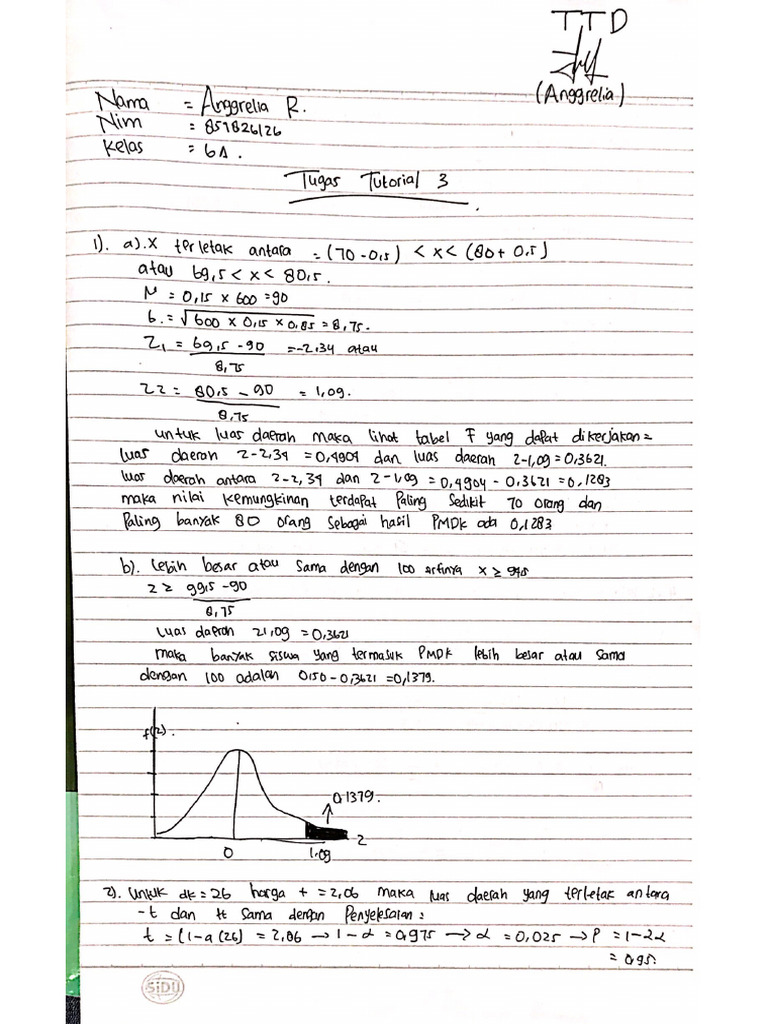 TTD
(Anggrelia)
Nama = Anggrelia R.
Nim = 857826126
Kelas = 6A.
Tugas Tutorial 3
1). a). X terletak antara = (70 - 0,5) < x < (80 + 0,5)
atau 69,5 < x < 80,5.
M = 0,15 x 600 = 90
6. = √600 x 0,15 x 0,85 = 8,75.
Z1 = 69,5 - 90 / 8,75 = -2,34 atau
Z2 = 80,5 - 90 / 8,75 = 1,09.
untuk luas daerah maka lihat tabel F yang dapat dikerjakan =
luas daerah 2-2,34 = 0,4904 dan luas daerah 2-1,09 = 0,3621.
luas daerah antara 2-2,34 dan 2-1,09 = 0,4904 - 0,3621 = 0,1283
maka nilai kemungkinan terdapat Paling Sedikit 70 orang dan
Paling banyak 80 orang Sebagai hasil PMDK ada 0,1283
b). Lebih besar atau Sama dengan 100 artinya x ≥ 99,5
Z ≥ 99,5 - 90 / 8,75
Luas daerah 21,09 = 0,3621
maka banyak siswa yang termasuk PMDK lebih besar atau sama
dengan 100 adalah 0,150 - 0,3621 = 0,1379.
f(2).
0,1379.
0 1.09 2
2). Untuk dk = 26 harga t = 2,06 maka luas daerah yang terletak antara
-t dan tt sama dengan Penyelesaian :
t = (1-a (26) = 2,06 → 1-α = 0,975 → α = 0,025 → P = 1-2α
= 0,95.
SiDU